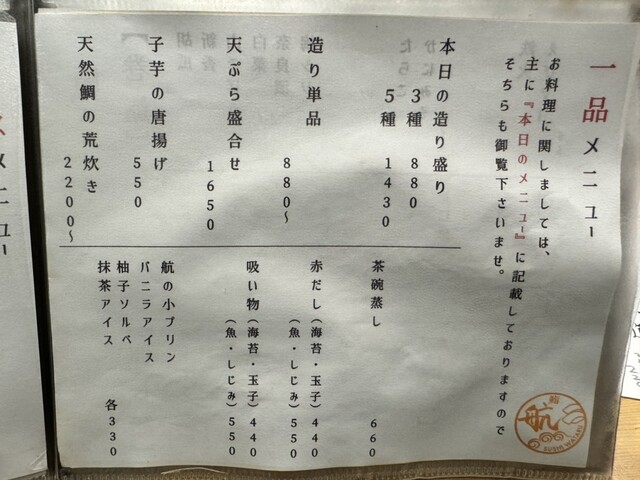 一品メニュー
お料理に関しましては、
主に『本日のメニュー』に記載しておりますので
そちらも御覧下さいませ。
本日の造り盛り
3種 880
5種 1430
造り単品
880〜
天ぷら盛合せ
1650
子芋の唐揚げ
550
天然鯛の荒炊き
2200〜
茶碗蒸し
660
赤だし(海苔・玉子)440
(魚・しじみ)550
吸い物(海苔・玉子)440
(魚・しじみ)550
航の小プリン
バニラアイス
柚子ソルベ
抹茶アイス
各330
鮨
航
SUSHI WATARU
メニュー